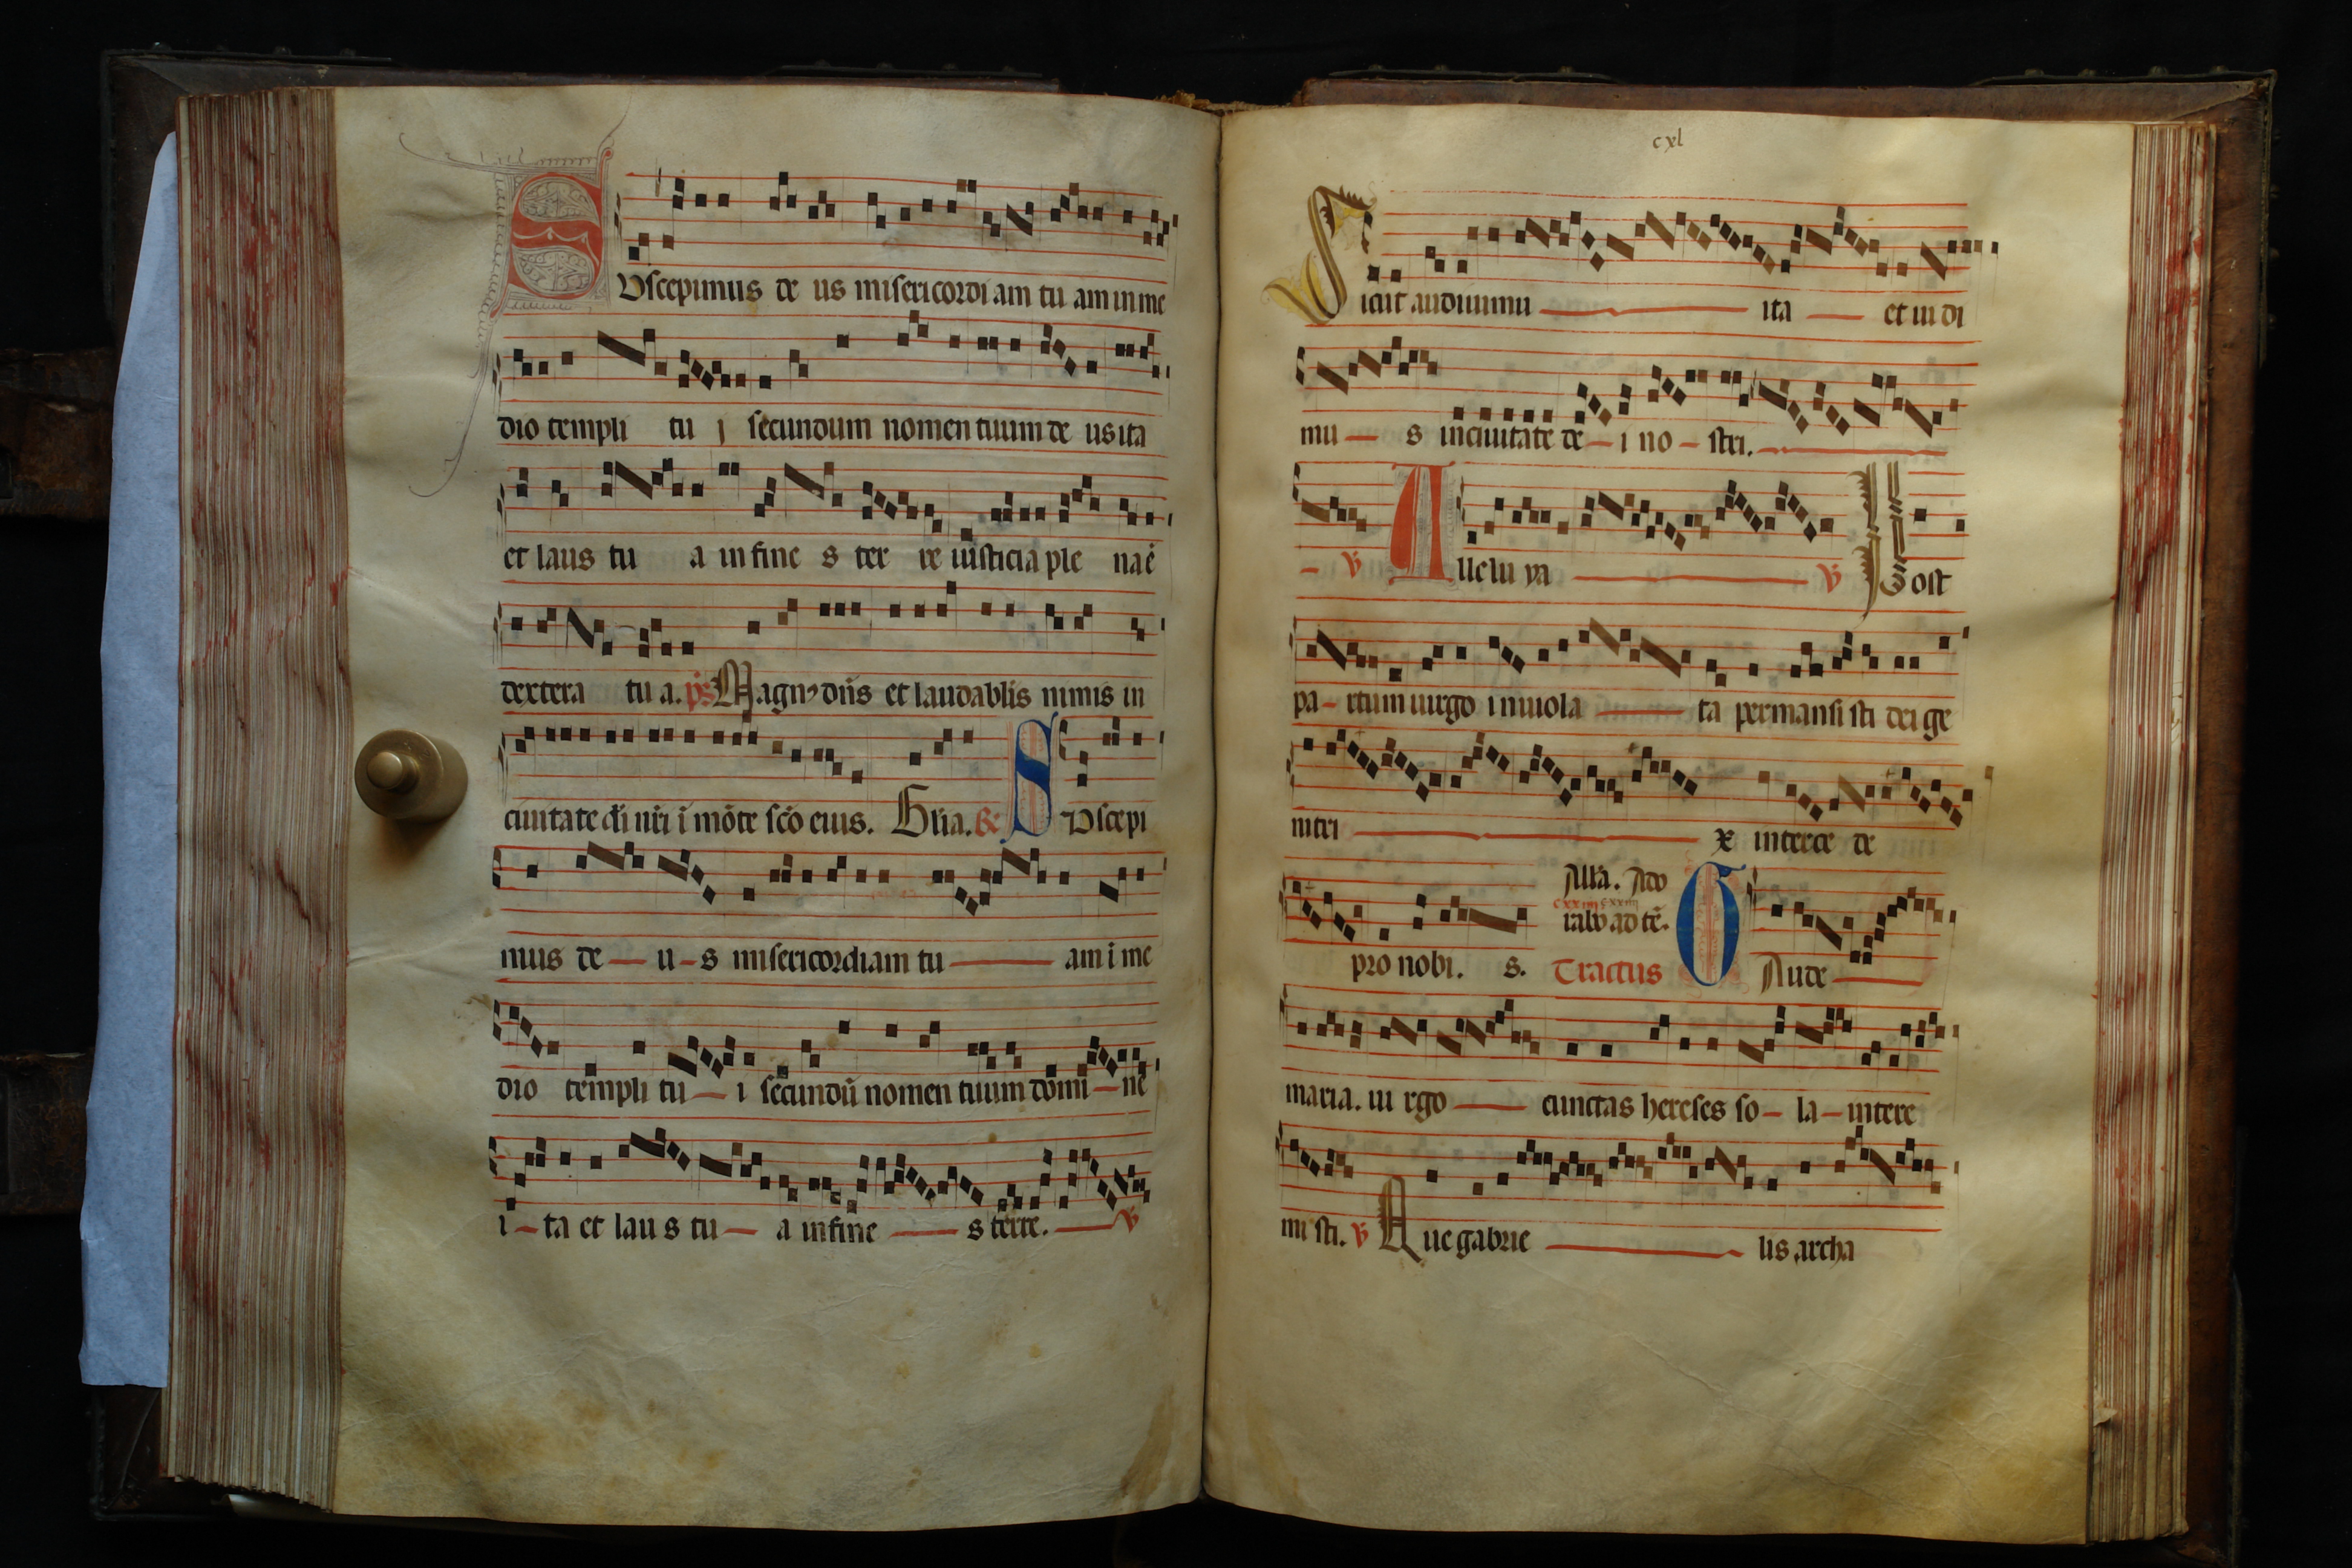 SUscepimus de us misericordi am tu am in me
dio templi tu j secundum nomen tuum de us ita
et laus tu a in fine s ter re iusticia ple na ē
dextera tu a. ps Magnꝰ dn̄s et laudabl̄is nimis in
ciuitate di nr̄i ī mōte sc̄o eius. Gl̄ia. R SUscepi
mus de u s misericordiam tu am ī me
dio templi tu i secundū nomen tuum domi ne
i ta et lau s tu a in fine s terre. V
cxl
Sicut audiuimu ita et ui di
mu s in ciuitate de i no stri.
V Alle lu ya V Post
pa rtum uirgo in uiola ta permansi sti dei ge
nitri x interce de
All'a. Ado
cxxiiii cxxiiii
rabo ad tē.
pro nobi. s. Tractus GAude
maria. ui rgo cunctas hereses so la intere
mi sti. V Aue gabrie lis archa